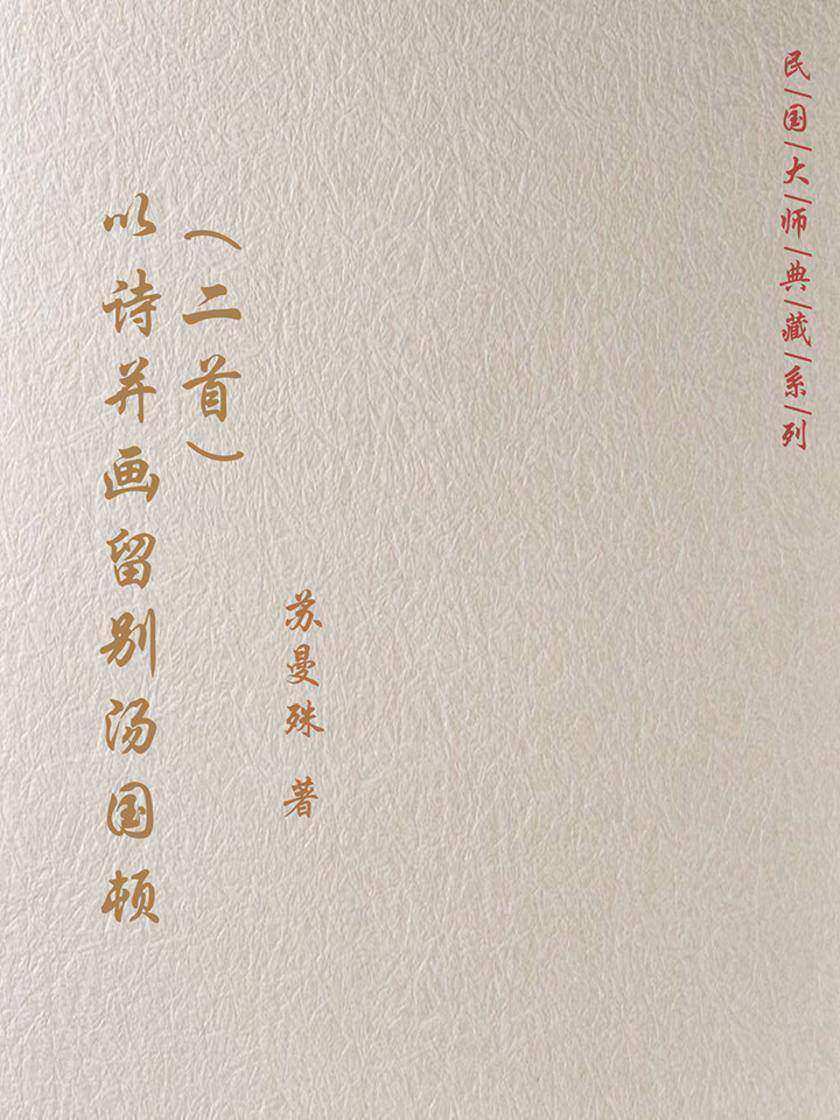 民/国/大/师/典/藏/系/列
以诗并画留别汤国顿
（二首）
苏曼殊 著